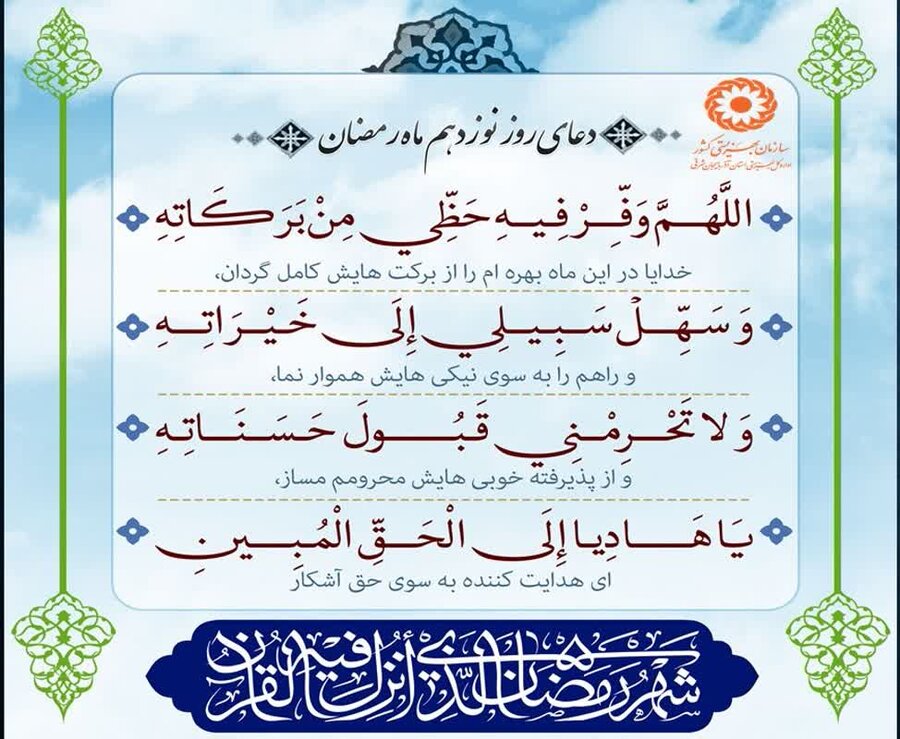 دعای روز نوزدهم ماه رمضان
سازمان بهزیستی کشور
اداره کل بهزیستی استان آذربایجان شرقی
اللَّهُمَّ وَفِّرْ فِيهِ حَظِّي مِنْ بَرَكَاتِهِ
خدایا در این ماه بهره ام را از برکت هایش کامل گردان،
وَ سَهِّلْ سَبِيلِي إِلَى خَيْرَاتِهِ
و راهم را به سوی نیکی هایش هموار نما،
وَ لا تَحْرِمْنِي قَبُولَ حَسَنَاتِهِ
و از پذیرفته خوبی هایش محرومم مساز،
يَا هَادِيا إِلَى الْحَقِّ الْمُبِينِ
ای هدایت کننده به سوی حق آشکار
شهر رمضان الذي أنزل فيه القرآن